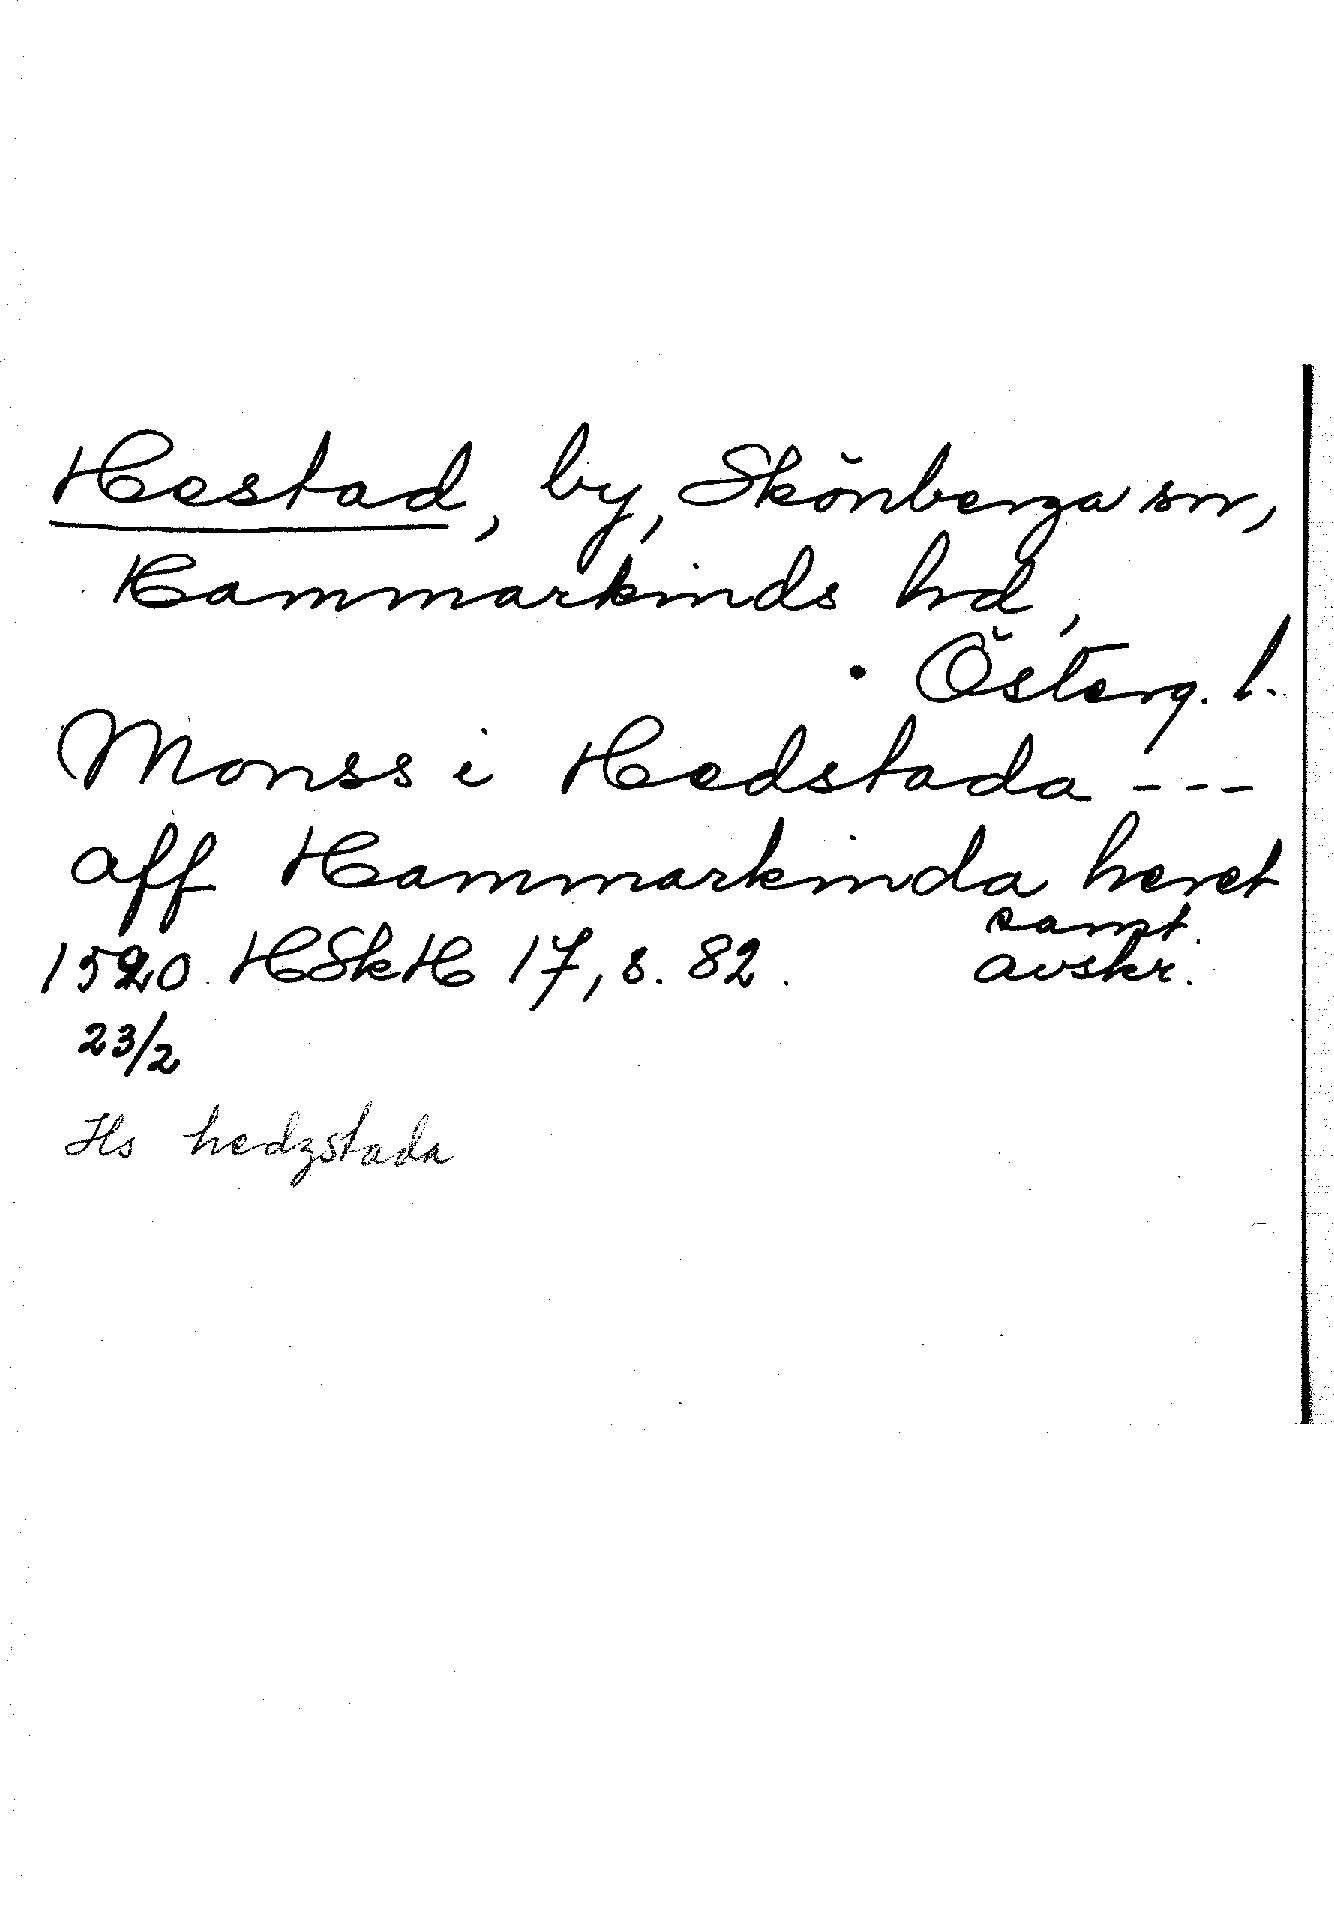 Hestad, by, Skönberga sn,
Hammarkinds hd,
Österg. l.
Monss i Hedstada ---
aff Hammarkinda heret
samt.
1520 HSkH 17, s. 82. avskr.
23/2
Hs hedzstada